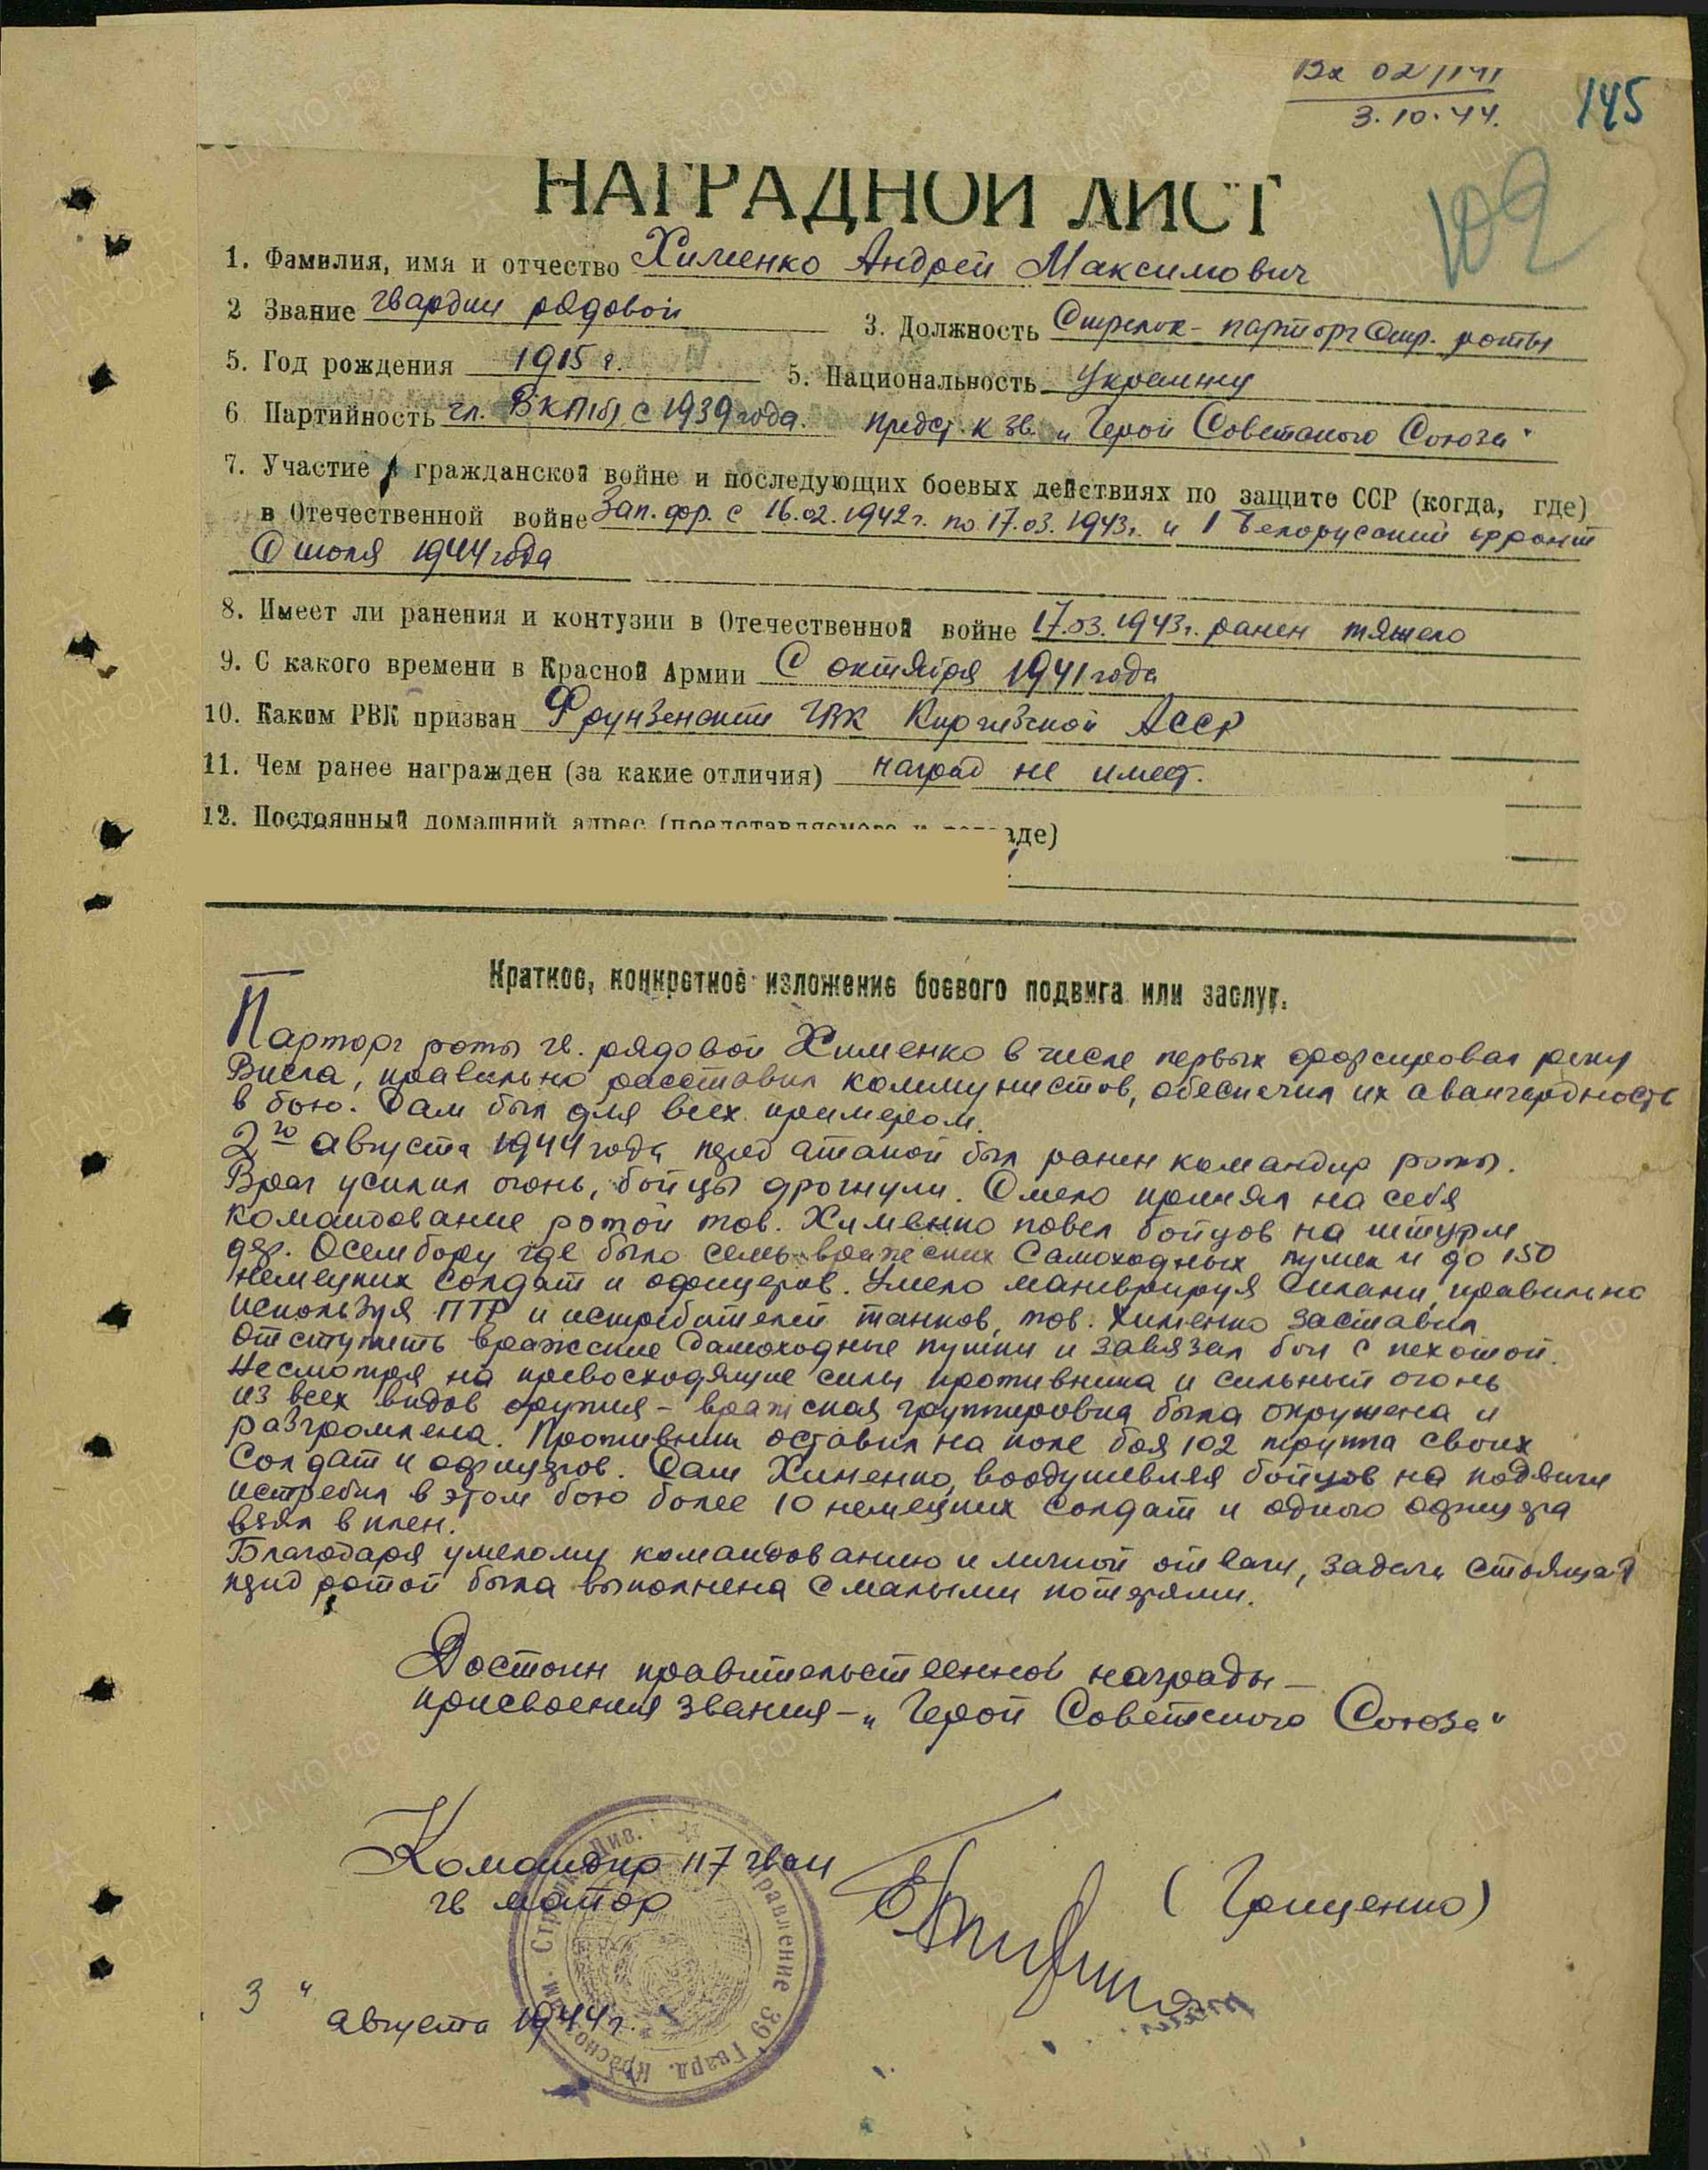 Вх 02/1141
3.10.44.
145
102
НАГРАДНОЙ ЛИСТ
1. Фамилия, имя и отчество Хименко Андрей Максимович
2 Звание гвардии рядовой 3. Должность Стрелок - парторг Стр. роты
5. Год рождения 1915 г. 5. Национальность Украинец
6 Партийность чл. ВКП(б) с 1939 года. предст. к зв. „Герой Советского Союза"
7. Участие в гражданской войне и последующих боевых действиях по защите ССР (когда, где)
в Отечественной войне Зап. фр. с 16.02.1942 г. по 17.03.1943 г. и 1 Белорусский фронт
С июля 1944 года
8. Имеет ли ранения и контузии в Отечественной войне 17.03.1943 г. ранен тяжело
9. С какого времени в Красной Армии С октября 1941 года
10. Каким РВК призван Фрунзенским ГВК Киргизской АССР
11. Чем ранее награжден (за какие отличия) наград не имеет.
12. Постоянный домашний адрес (представляемого к награде)
Краткое, конкретное изложение боевого подвига или заслуг.
Парторг роты гв. рядовой Хименко в числе первых форсировал реку
Висла, правильно расставил коммунистов, обеспечил их авангардность
в бою. Сам был для всех примером.
2го августа 1944 года перед атакой был ранен командир роты.
Враг усилил огонь, бойцы дрогнули. Смело принял на себя
командование ротой тов. Хименко повел бойцов на штурм
дер. Осембору где было семь вражеских самоходных пушек и до 150
немецких солдат и офицеров. Умело маневрируя силами, правильно
используя ПТР и истребителей танков, тов. Хименко заставил
отступить вражеские самоходные пушки и завязал бой с пехотой.
Несмотря на превосходящие силы противника и сильный огонь
из всех видов оружия - вражеская группировка была окружена и
разгромлена. Противник оставил на поле боя 102 трупа своих
солдат и офицеров. Сам Хименко, воодушевляя бойцов на подвиги
истребил в этом бою более 10 немецких солдат и одного офицера
взял в плен.
Благодаря умелому командованию и личной отваги, задача стоящая
перед ротой была выполнена с малыми потерями.
Достоин правительственной награды -
присвоения звания - „Герой Советского Союза"
Командир 117 гвсп
гв майор (Грищенко)
3 " августа 1944 г.
Управление 39 Гвард. Краснозн. Стрелк. Див.
ЦАМО РФ